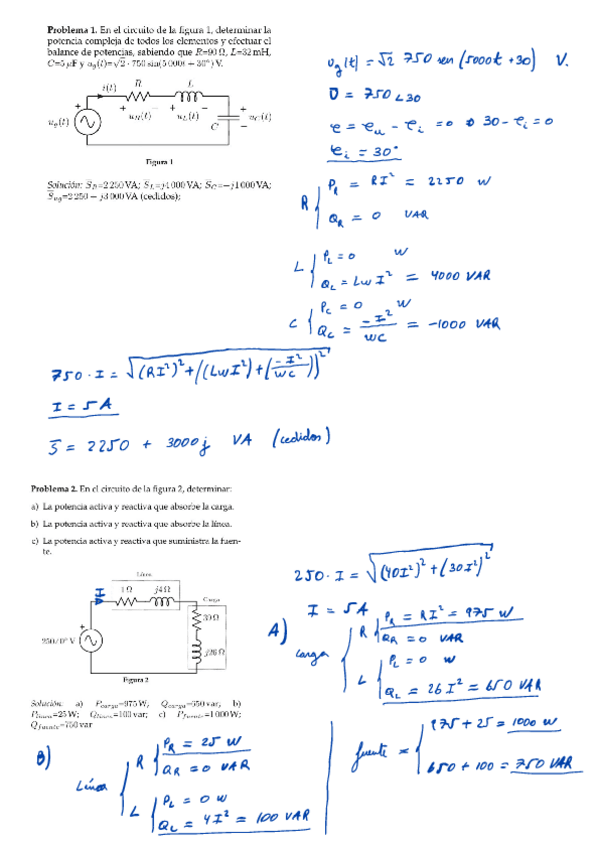 Problema 1. En el circuito de la figura 1, determinar la
potencia compleja de todos los elementos y efectuar el
balance de potencias, sabiendo que R=90 Ω, L=32 mH,
C=5 μF y u_g(t)=√2 · 750 sin(5 000t + 30°) V.
i(t)
R
L
+ −
+ −
u_R(t)
u_L(t)
+
u_g(t)
C
+
u_C(t)
−
Figura 1
Solución: S_R=2 250 VA; S_L=j4 000 VA; S_C=−j1 000 VA;
S_ug=2 250 − j3 000 VA (cedidos);
u_g(t) = √2 750 sen (5000t + 30) V.
U = 750∠30
φ = φ_u − φ_i = 0 → 30 − φ_i = 0
φ_i = 30°
R
P_R = RI² = 2250 W
Q_R = 0 VAR
L
P_L = 0 W
Q_L = LωI² = 4000 VAR
C
P_C = 0 W
Q_C = −I²/WC = −1000 VAR
750 · I = √(RI²)² + ((LωI²) + (−I²/WC))²
I = 5 A
S̄ = 2250 + 3000j VA (cedidos)
Problema 2. En el circuito de la figura 2, determinar:
a) La potencia activa y reactiva que absorbe la carga.
b) La potencia activa y reactiva que absorbe la línea.
c) La potencia activa y reactiva que suministra la fuen-
te.
Línea
I
1 Ω
j4 Ω
Carga
39 Ω
j26 Ω
+
250/0° V
Figura 2
Solución: a) P_carga=975 W; Q_carga=650 var; b)
P_línea=25 W; Q_línea=100 var; c) P_fuente=1 000 W;
Q_fuente=750 var
250 · I = √(40I²)² + (30I²)²
I = 5A
A)
carga
R
P_R = RI² = 975 W
Q_R = 0 VAR
L
P_L = 0 W
Q_L = 26 I² = 650 VAR
B)
Línea
R
P_R = 25 W
Q_R = 0 VAR
L
P_L = 0 W
Q_L = 4I² = 100 VAR
fuente =
975 + 25 = 1000 W
650 + 100 = 750 VAR